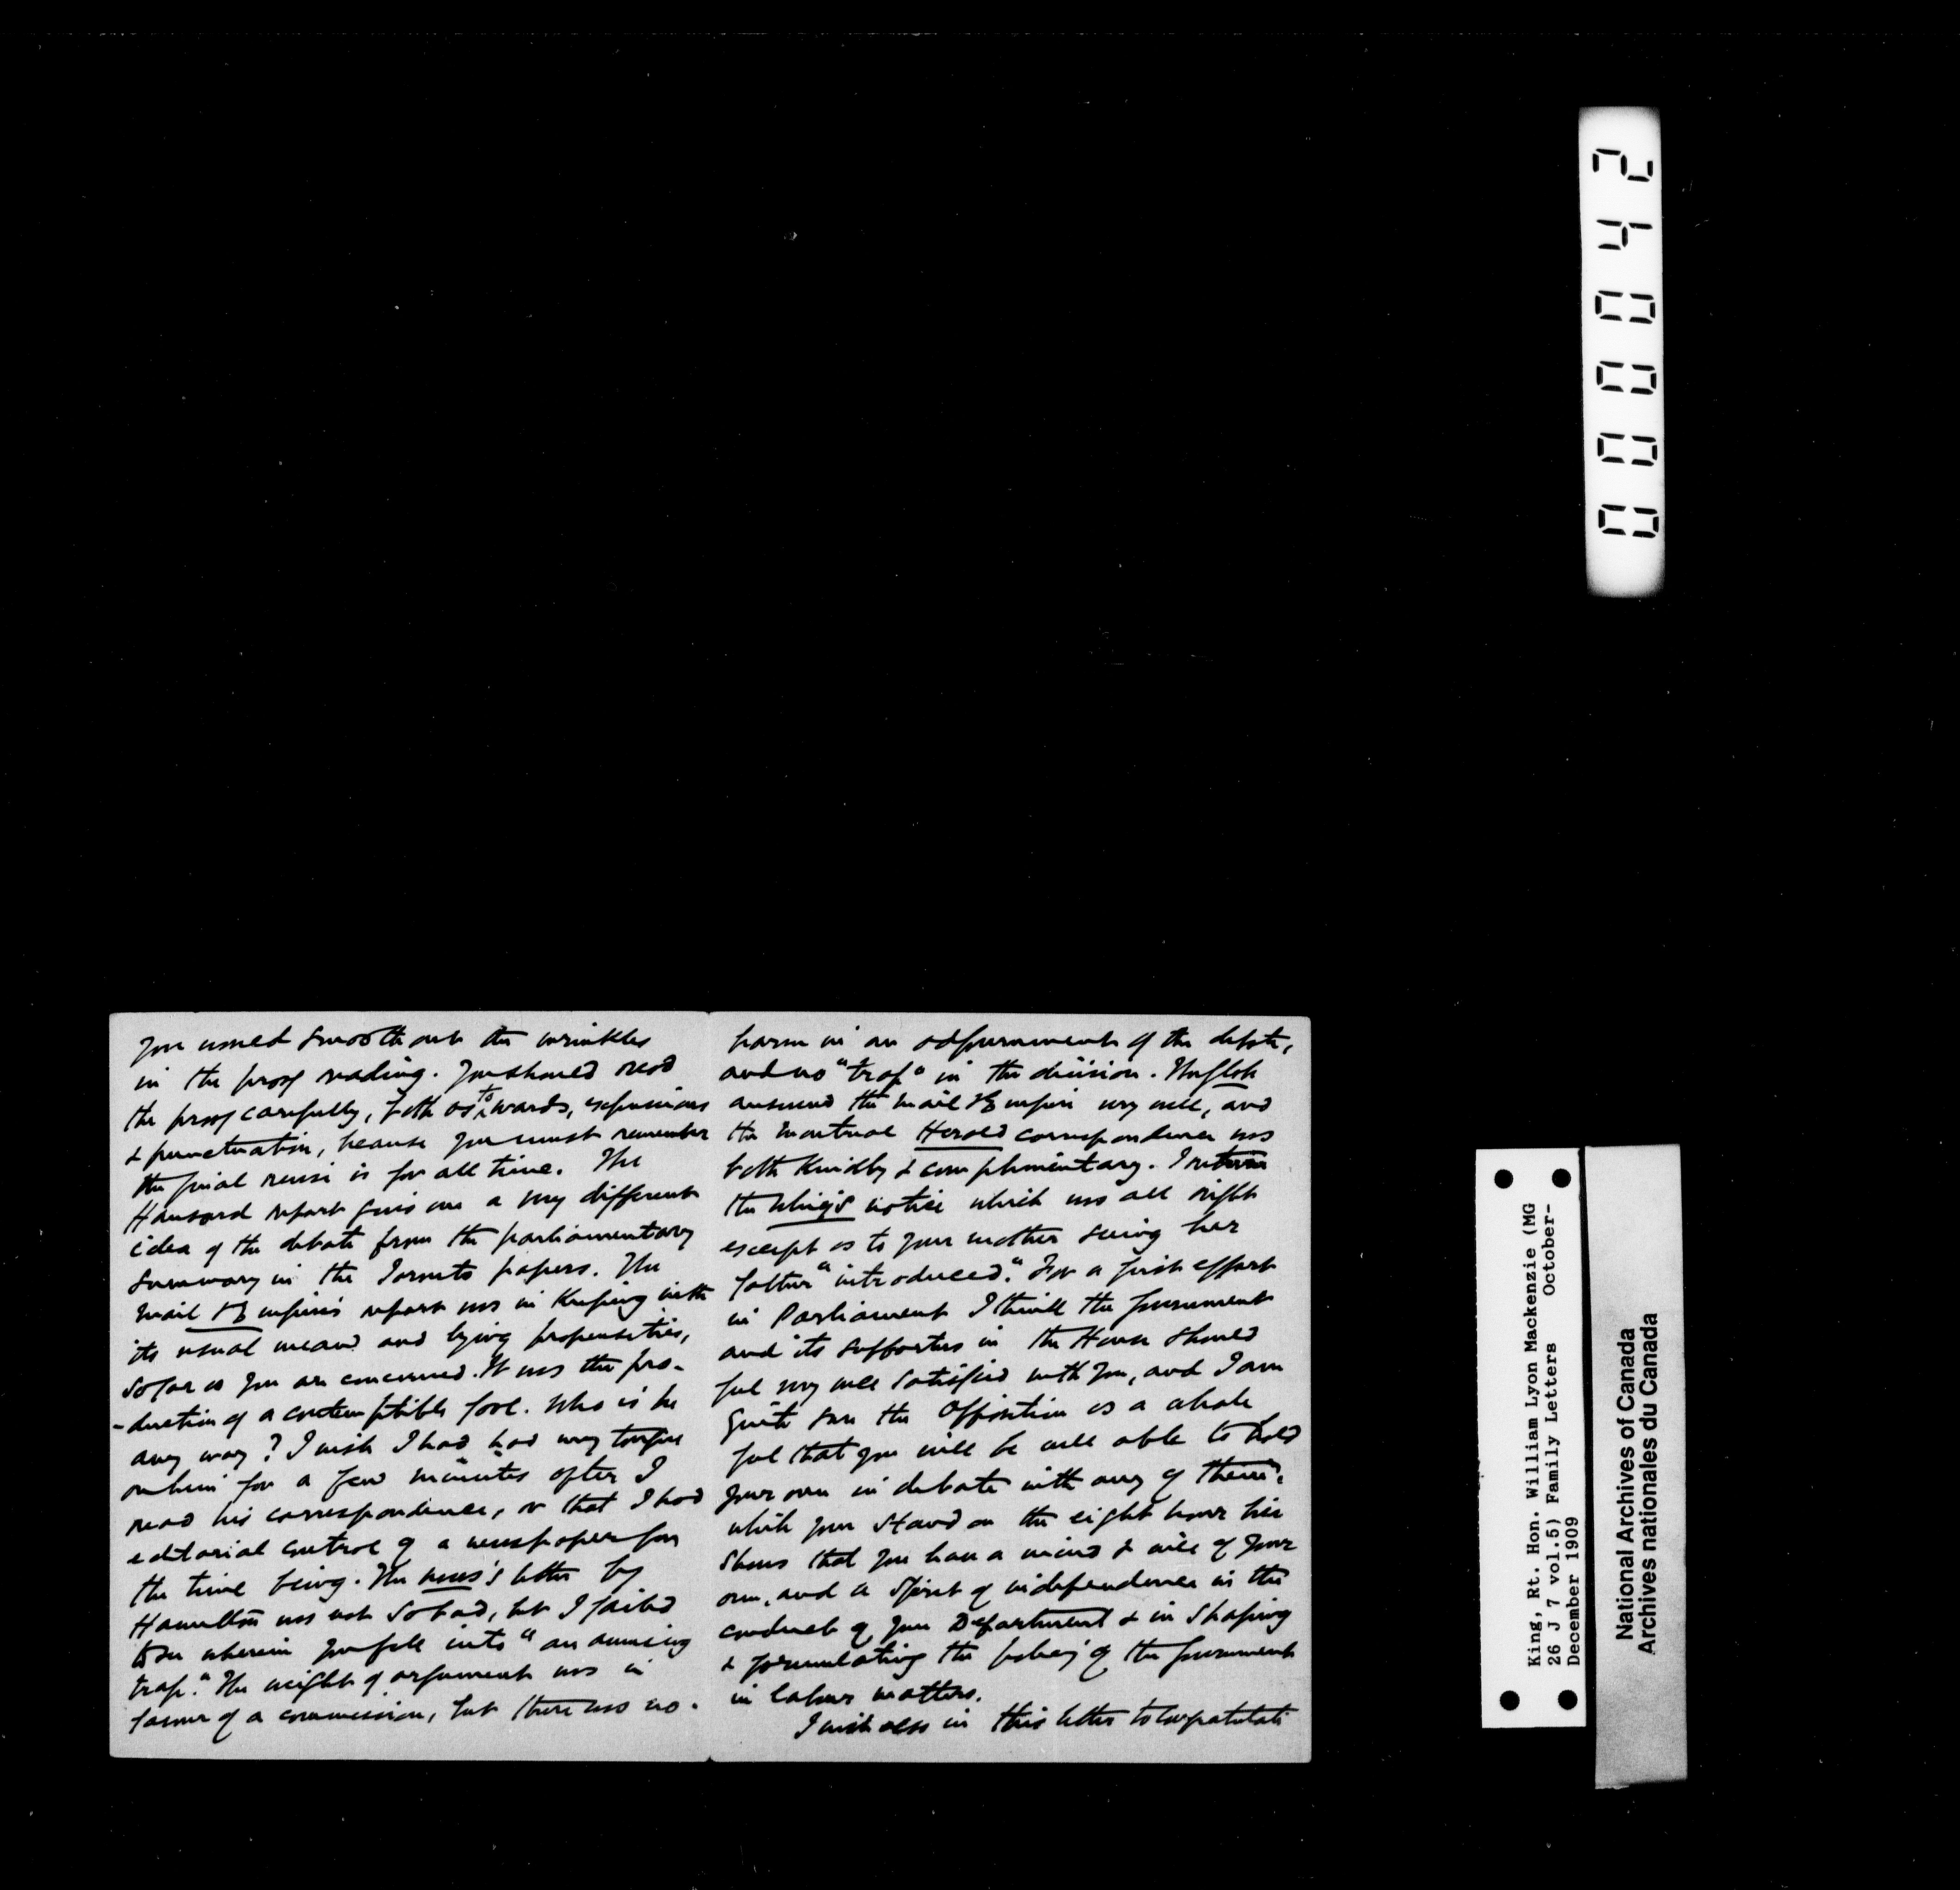 you would smooth out the wrinkles
in the proof reading. You should read
the proof carefully, both as to words, expressions
& punctuation, because you must remember
the final revise is for all time. The
Hansard report gives one a very different
idea of the debate from the parliamentary
summary in the Toronto papers. The
Mail & Empire's report was in keeping with
its usual mean and lying propensities,
so far as you are concerned. It was the pro-
-duction of a contemptible fool. Who is he
any way? I wish I had had my tongue
on him for a few minutes after I
read his correspondence, or that I had
editorial control of a newspaper for
the time being. The News's letter by
Hamilton was not so bad, but I failed
to see wherein you fell into "an amusing
trap." The weight of argument was in
favour of a commission, but there was no
harm in an adjournment of the debate,
and no "trap" in the division. The Globe
answered the Mail & Empire very well, and
the Montreal Herald correspondence was
both kindly & complimentary. I return
the Whig's notice which was all right
except as to your mother seeing her
father "introduced." For a first effort
in Parliament I think the government
and its supporters in the House should
feel very well satisfied with you, and I am
quite sure the Opposition as a whole
feel that you will be well able to hold
your own in debate with any of them,
while your stand on the eight hour bill
shows that you have a mind & will of your
own, and a spirit of independence in the
conduct of your Department & in shaping
& formulating the policy of the government
in labour matters.
I wish also in this letter to congratulate
000042
King, Rt. Hon. William Lyon Mackenzie (MG
26 J 7 vol.5) Family Letters October-
December 1909
National Archives of Canada
Archives nationales du Canada